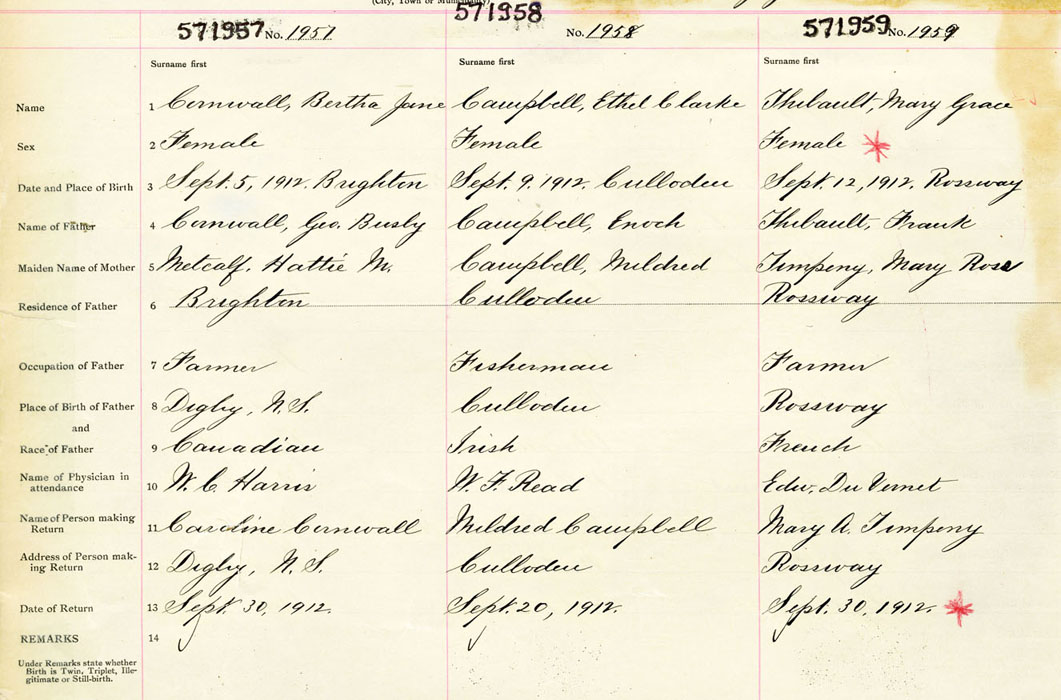 (City, Town or Municipality)
571957 No. 1957 571958 No. 1958 571959 No. 1959
Surname first Surname first Surname first
Name 1 Cornwall, Bertha Jane Campbell, Ethel Clarke Thibault, Mary Grace
Sex 2 Female Female Female
Date and Place of Birth 3 Sept. 5, 1912. Brighton Sept. 9. 1912. Culloden Sept. 12, 1912. Rossway
Name of Father 4 Cornwall, Geo. Busby Campbell, Enoch Thibault, Frank
Maiden Name of Mother 5 Metcalf. Hattie M. Campbell, Mildred Timpeny, Mary Rose
Residence of Father 6 Brighton Culloden Rossway
Occupation of Father 7 Farmer Fisherman Farmer
Place of Birth of Father 8 Digby, N.S. Culloden Rossway
and
Race of Father 9 Canadian Irish French
Name of Physician in
attendance 10 W. C. Harris W. F. Read Edw. Du Vernet
Name of Person making
Return 11 Caroline Cornwall Mildred Campbell Mary A. Timpeny
Address of Person mak-
ing Return 12 Digby, N.S. Culloden Rossway
Date of Return 13 Sept. 30, 1912. Sept. 20, 1912. Sept. 30, 1912.
REMARKS 14
Under Remarks state whether
Birth is Twin, Triplet, Ille-
gitimate or Still-birth.